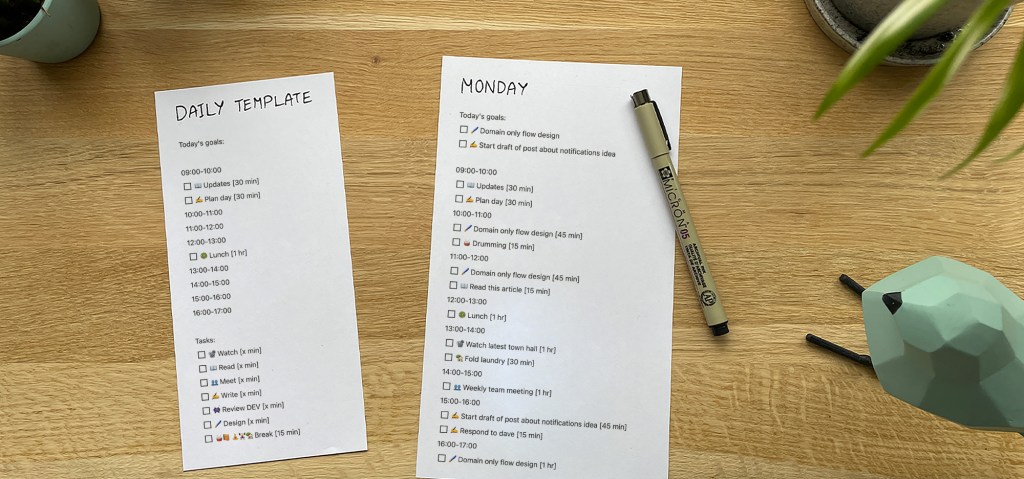 DAILY TEMPLATE
Today's goals:
09:00-10:00
Updates [30 min]
Plan day [30 min]
10:00-11:00
11:00-12:00
12:00-13:00
Lunch [1 hr]
13:00-14:00
14:00-15:00
15:00-16:00
16:00-17:00
Tasks:
Watch [x min]
Read [x min]
Meet [x min]
Write [x min]
Review DEV [x min]
Design [x min]
Break [15 min]
MONDAY
Today's goals:
Domain only flow design
Start draft of post about notifications idea
09:00-10:00
Updates [30 min]
Plan day [30 min]
10:00-11:00
Domain only flow design [45 min]
Drumming [15 min]
11:00-12:00
Domain only flow design [45 min]
Read this article [15 min]
12:00-13:00
Lunch [1 hr]
13:00-14:00
Watch latest town hall [1 hr]
Fold laundry [30 min]
14:00-15:00
Weekly team meeting [1 hr]
15:00-16:00
Start draft of post about notifications idea [45 min]
Respond to dave [15 min]
16:00-17:00
Domain only flow design [1 hr]
MICRON 05